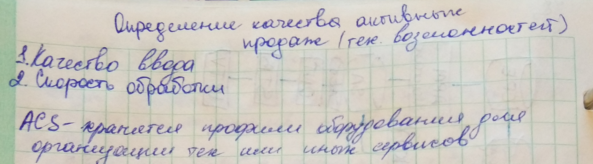 Определение качества активных
продаж (тех. возможностей)
1. Качество ввода
2. Скорость обработки
ACS - хранятся профили оборудования для
организации тех или иных сервисов